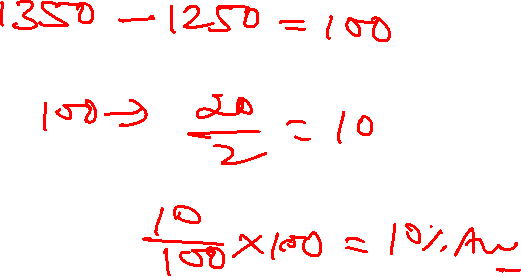 1350 - 1250 = 100
100 → 20/2 = 10
10/100 × 100 = 10% Ans